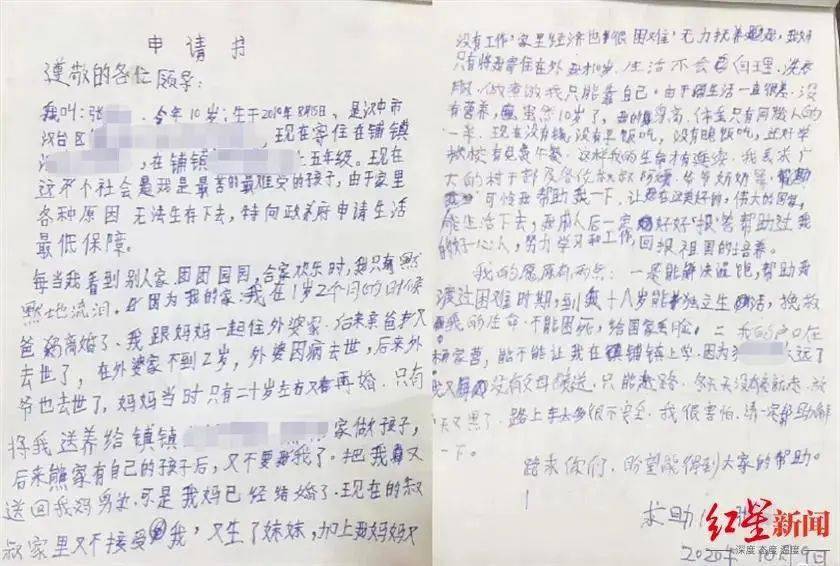 申请书
尊敬的各位领导:
我叫:张 今年10岁;生于2010年8月15日、是汉中市
汉台区 ,现在寄住在铺镇
,在铺镇 上五年级。现在
这个社会是我是最苦的最难受的孩子,由于家里
各种原因 无法生存下去,特向政府申请生活
最低保障。
每当我看到别人家团团圆圆,合家欢乐时,我只有默
默地流泪。因为我的家:我在1岁2个月的时候
爸妈离婚了、我跟妈妈一起住外婆家.后来亲爸爸又
去世了,在外婆家不到2岁,外婆因病去世,后来外
爷也去世了,妈妈当时只有二十岁左右又再婚.只有
将我送养给镇镇 家做孩子,
后来熊家有自己的孩子后,又不要我了。把我又
送回我妈身边.可是我妈已经结婚了.现在的叔
叔家里又不接受我,又生了妹妹,加上我妈妈又
没有工作,家里经济也很困难,无力抚养,我妈
只有将我寄住在外,10岁.生活不会自理.洗衣
服.做煮饭我只能靠自己。由于生活一直很差.没
有营养,虽然10岁了,身高.体重只有同龄人的
一半.现在没有钱,没有早饭吃,没有晚饭吃,还好学
校有免费午餐.这样我的生命才有连续.我恳求广
大的村干部及各位叔叔阿姨.爷爷奶奶
可怜我帮助我一下.让我在这美好的,伟大的国家,
能生活下去,我成人后一定好好报答帮助过我
的好心人,努力学习和工作,回报祖国的培养。
我的愿有两点:一是能解决温饱,帮助我
渡过困难时期,到我十八岁能独立生活,挽救
我的生命.不能困死,给国家丢脸。二我的户口在
家营,能不能让我在铺镇上学.因为 太远了
我又没有父母接送.只能走路.冬天天没亮就走.放
天又黑了.路上车太多很不安全.我很害怕.请 帮助解
一下。
跪求你们.盼望能得到大家的帮助。
求助
2020年10月1日
红星新闻
深度 态度 温度